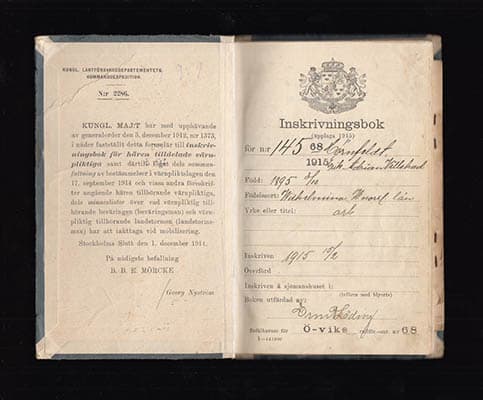 KUNGL. LANTFÖRSVARSDEPARTEMENTETS
KOMMANDOEXPEDITION.
N:r 2286.
KUNGL. MAJ:T har med upphävande
av generalorder den 5. december 1912, nr 1373,
i nåder fastställt detta formulär till inskriv-
ningsbok för hären tilldelade värn-
pliktiga samt därtill fogat dels sammanfattning
av bestämmelser i värnpliktslagen den
17. september 1914 och vissa andra föreskrifter
angående hären tillhörande värnpliktiga,
dels minneslistor över vad värnpliktig till-
hörande beväringen (beväringsman) och värn-
pliktig tillhörande landstormen (landstorms-
man) har att iakttaga vid mobilisering.
Stockholms Slott den 1. december 1914.
På nådigste befallning
B. B. E. MÖRCKE
Georg Nyström
Inskrivningsbok
(Upplaga 1915)
för n:r 145 68
1915
Född: 1895
Födelseort: Wilhelmina län
Yrke eller titel:
Inskriven 1915
Överförd
Inskriven å sjömanshuset i:
(Ifylles med blyerts)
Boken utfärdad av:
Befälhavare för Ö-viks nr 68